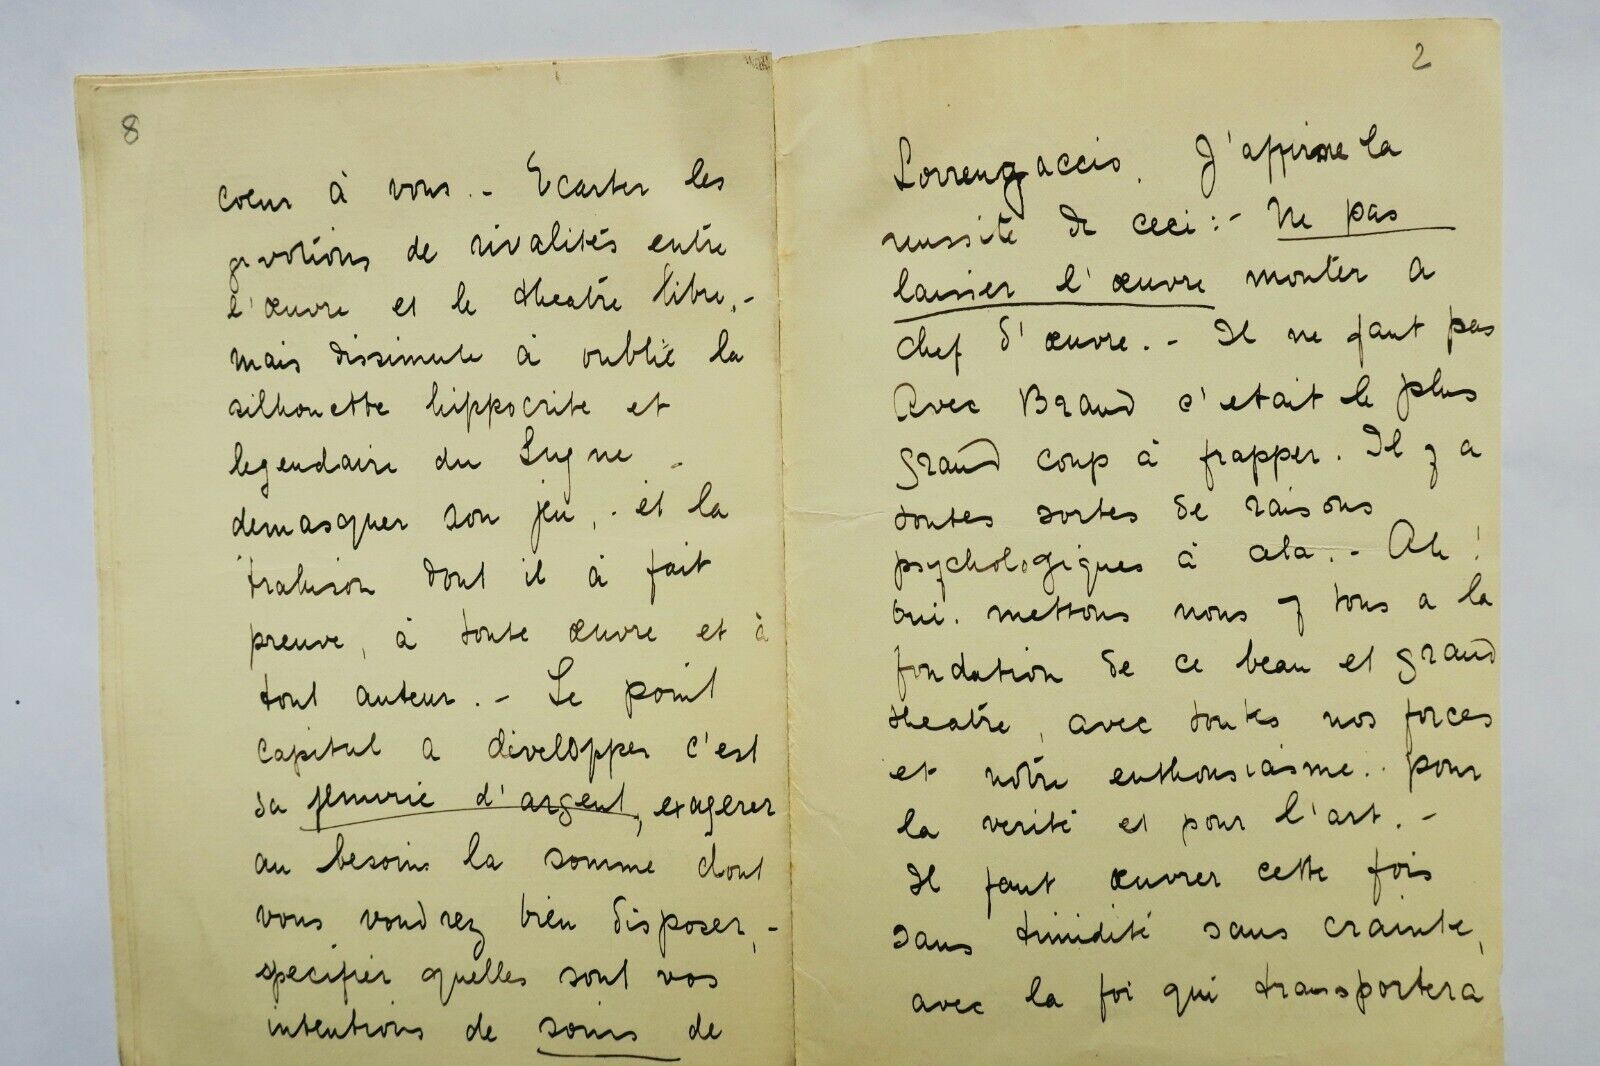 8
coeur à vous. - Ecarter les
questions de rivalités entre
l'œuvre et le theatre libre, -
mais dissimule à oublié la
silhouette hippocrite et
legendaire du Lugne -
demasquer son jeu, - et la
trahison dont il à fait
preuve, à toute œuvre et à
tout auteur. - Le point
capital a développer c'est
sa penurie d'argent, exagerer
au besoin la somme dont
vous voudrez bien disposer, -
specifier quelles sont vos
intentions de soins de
2
Lorrenzaccio. J'affirme la
reussite de ceci : - Ne pas
laisser l'œuvre monter a
chef d'œuvre. - Il ne faut pas
Avec Brand c'etait le plus
grand coup à frapper. Il y a
toutes sortes de raisons
psychologiques à cela. - Ah !
oui. mettons nous y tous a la
fondation de ce beau et grand
theatre, avec toutes nos forces
et notre enthousiasme.. pour
la verité et pour l'art. -
Il faut œuvrer cette fois
sans timidité sans crainte,
avec la foi qui transportera